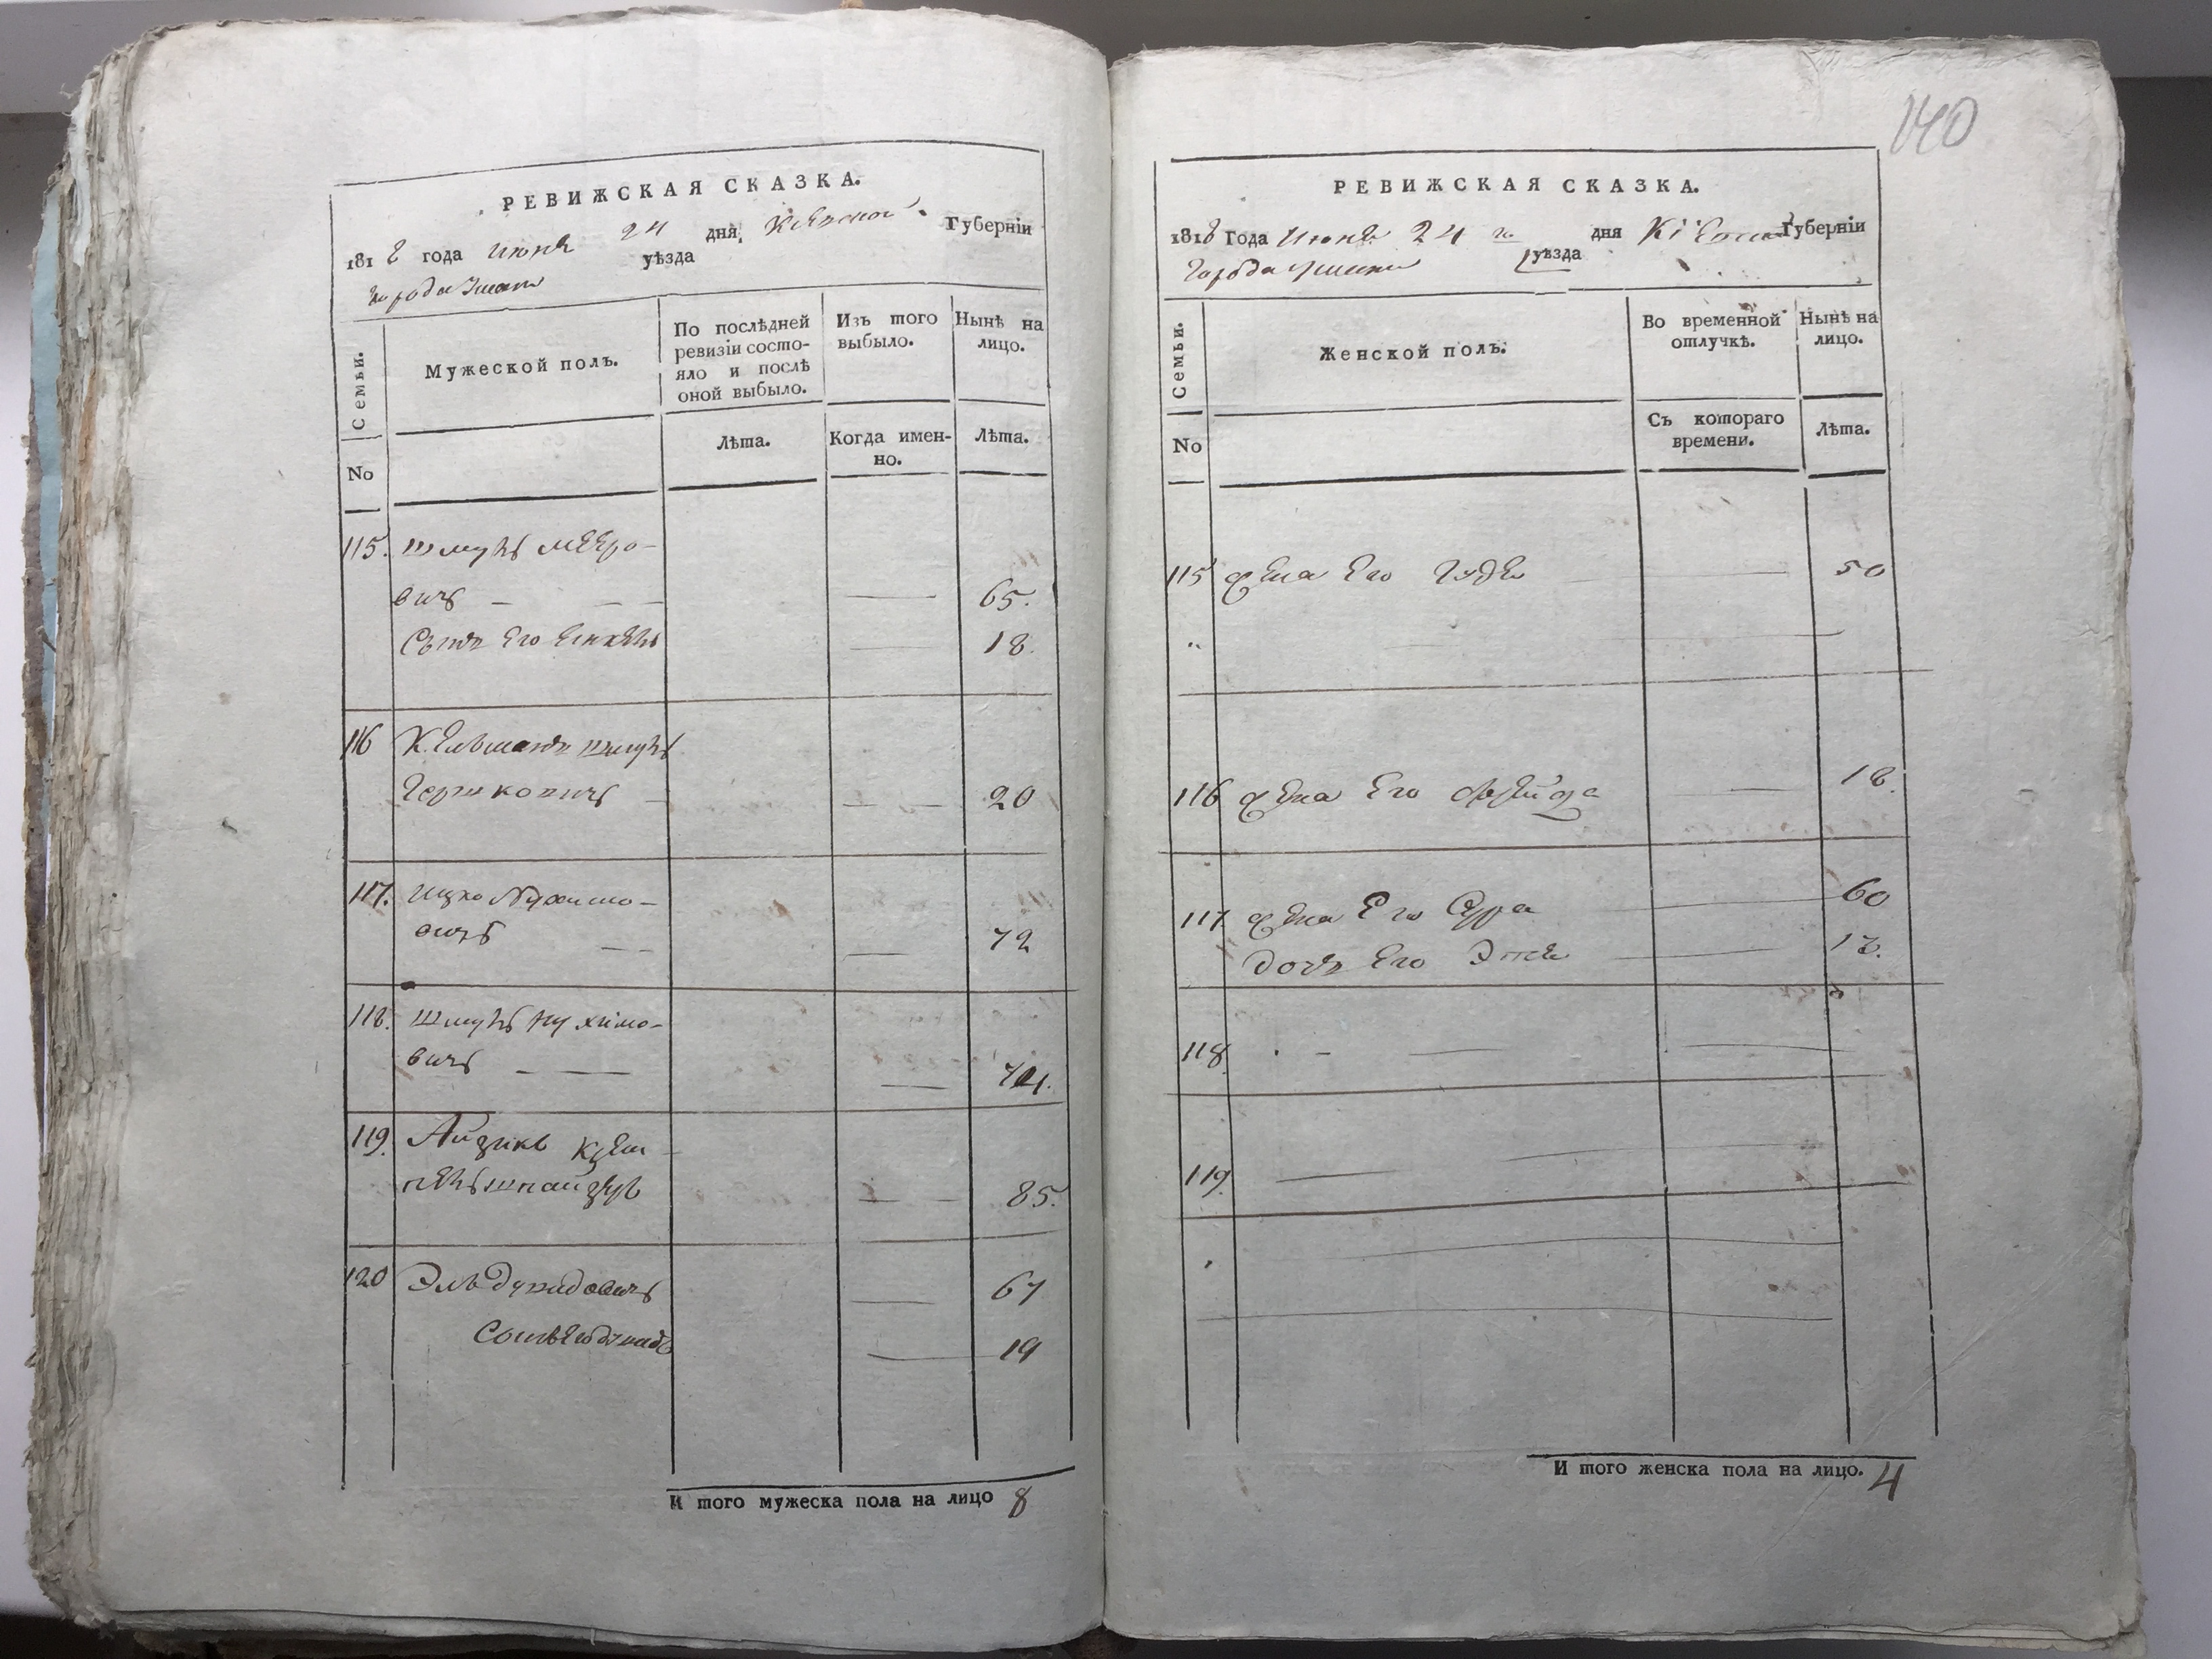 РЕВИЖСКАЯ СКАЗКА.
1818 года июня 24 дня, Киевской Губерніи
города Умани уѣзда
Семьи.
Мужеской полъ.
По послѣдней ревизіи состо-
яло и послѣ
оной выбыло.
Изъ того
выбыло.
Нынѣ на
лицо.
No
Лѣта.
Когда имен-
но.
Лѣта.
115. Шмуль Мееро-
вичъ 65.
Сынъ Его 18.
116 Кельманъ Шмуль
Гершковичъ 20
117. Ицко Нухимо-
вичъ 72
118. Шмуль Нухимо-
вичъ 74.
119. Айзикъ
85.
120 Эль Дувидовичъ 67
Сынъ Его Дувидъ 19
И того мужеска пола на лицо 8
140
РЕВИЖСКАЯ СКАЗКА.
1818 Года Июня 24 го дня Кіевской Губерніи
Города Умани уѣзда
Семьи.
Женской полъ.
Во временной
отлучкѣ.
Нынѣ на
лицо.
No
Съ котораго
времени.
Лѣта.
115 жена Его 50
116 жена Его Фрейда 18.
117 жена Его Сура 60
дочь Его 13.
118
119.
И того женска пола на лицо. 4